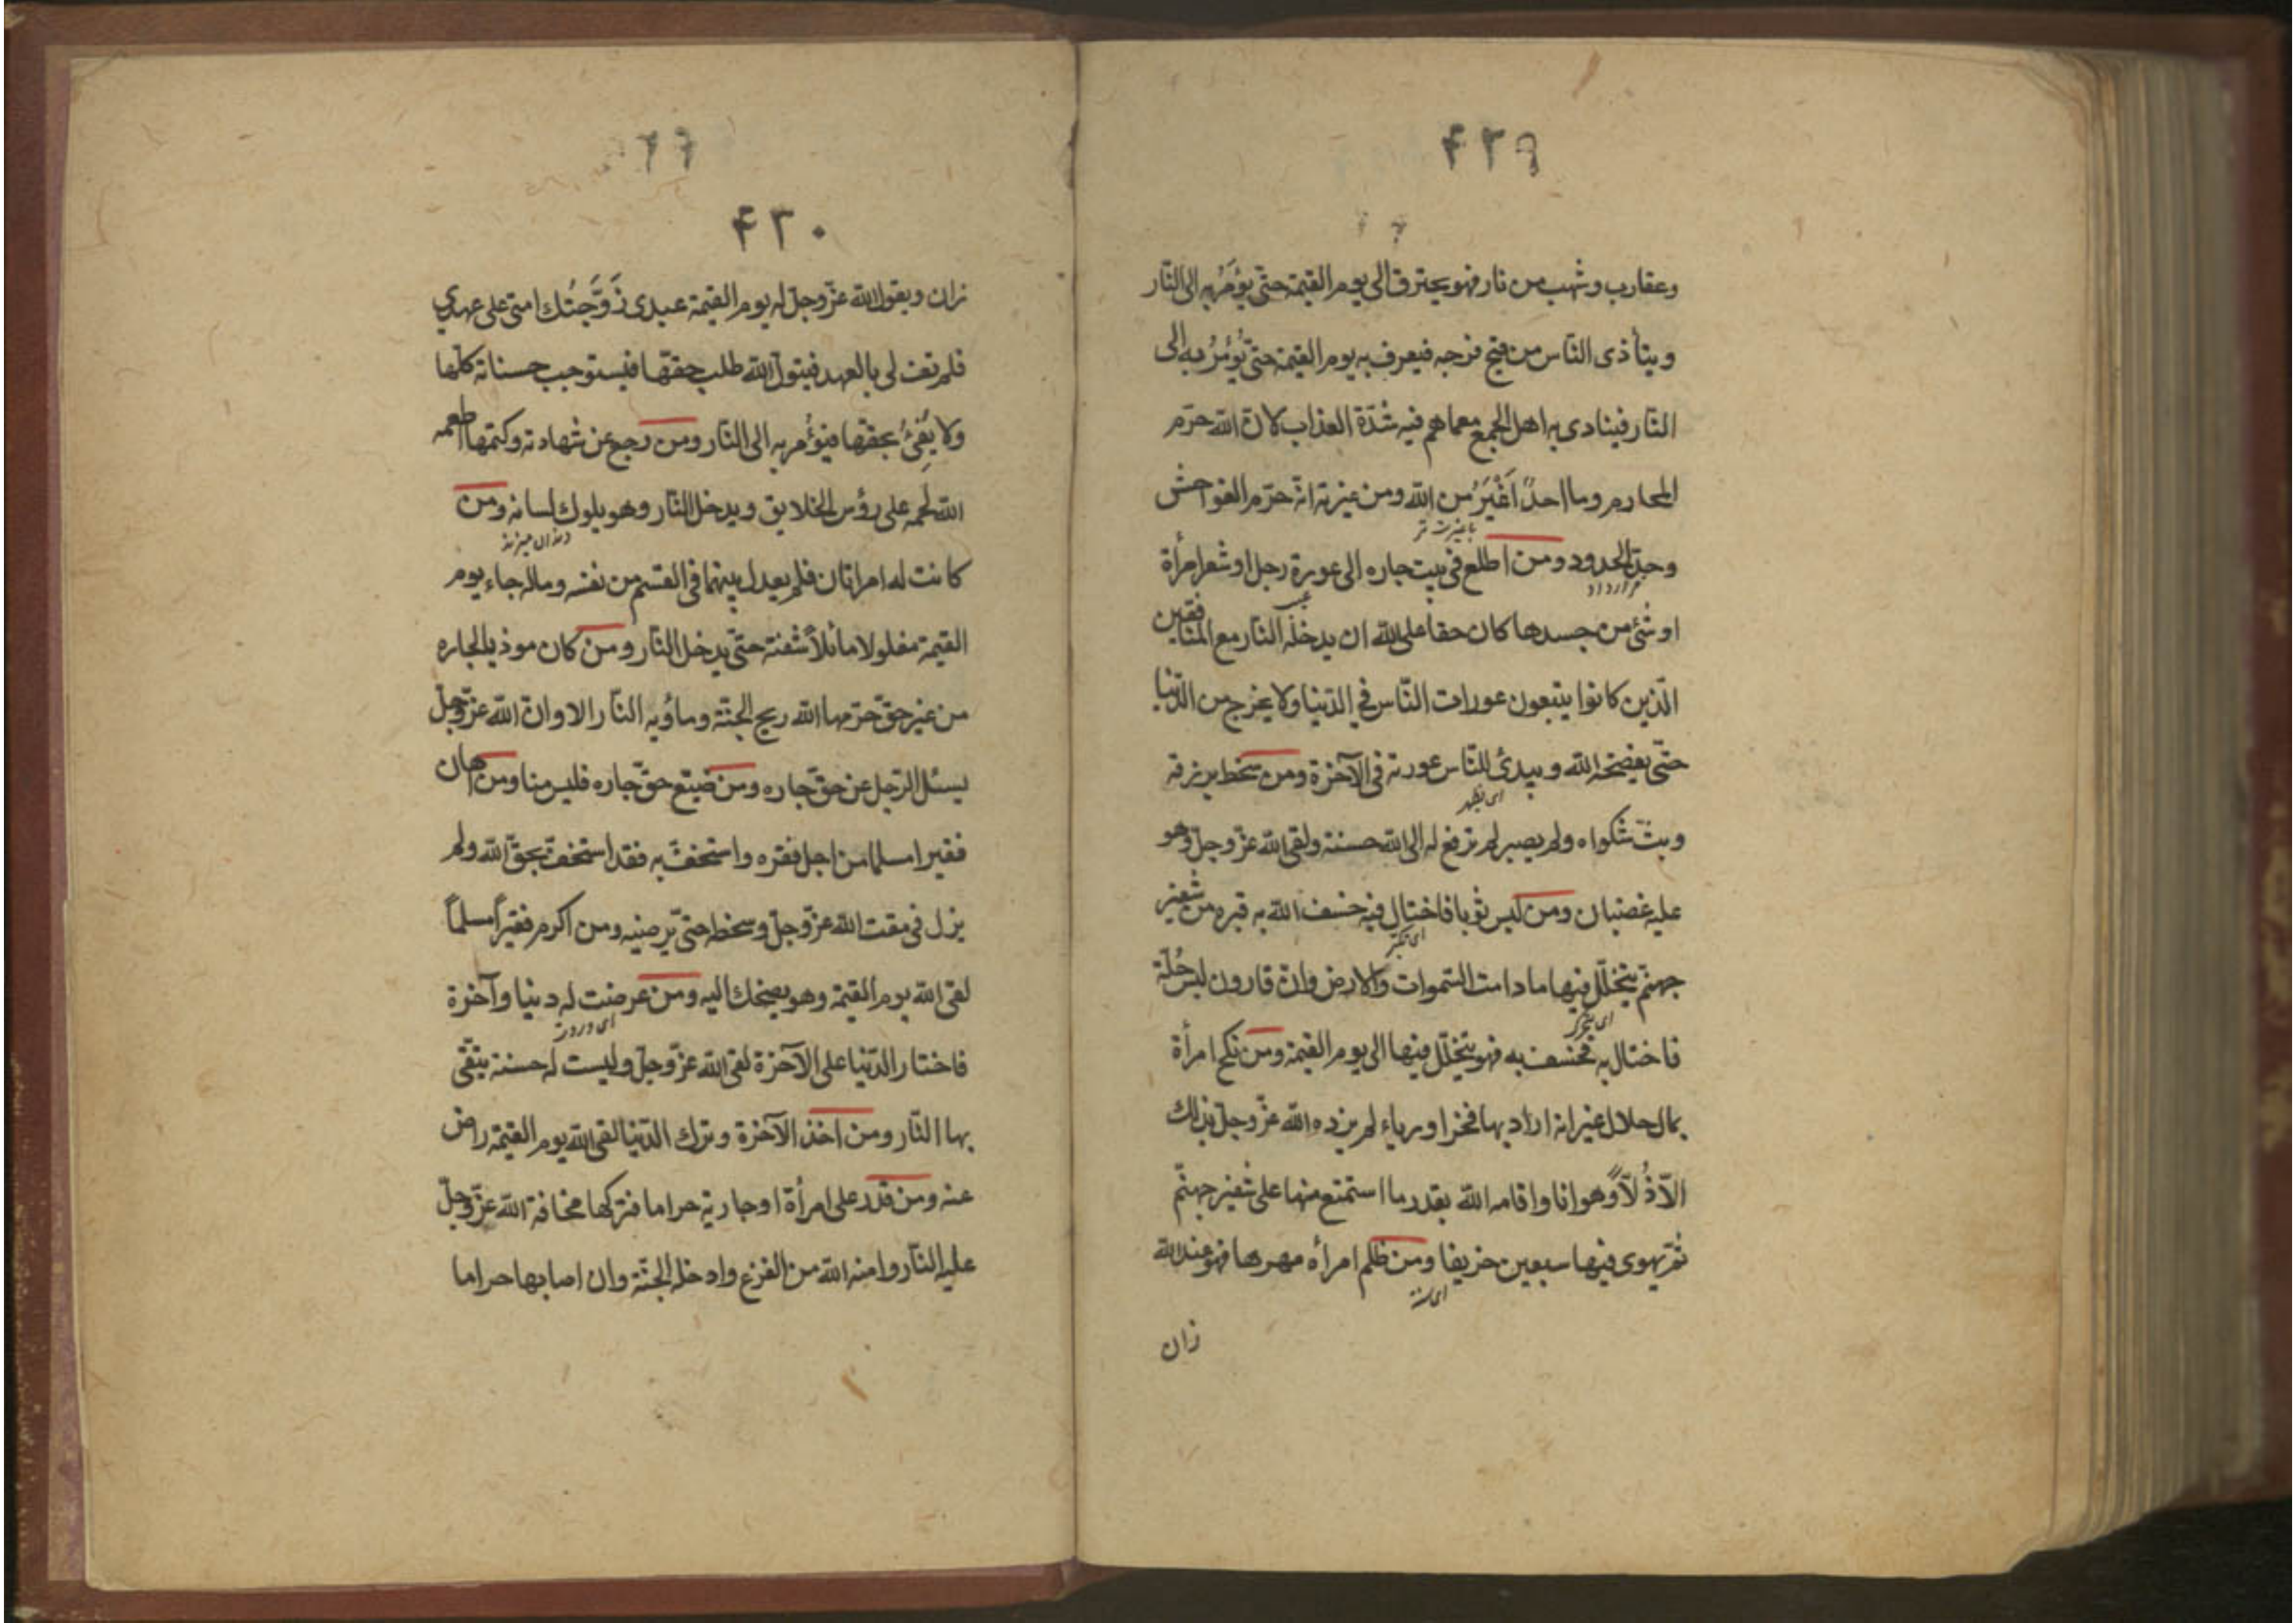 ۴۲۹
وعقارب وشهب من نار فهو يحترق الى يوم القيمة حتّى يؤمَرُ به الى النّار
ويتأذى النّاس من نتج فرجه فيعرف به يوم القيمة حتّى يُؤمَرُ به الى
النّار فينادى به اهل الجمع معما هم فيه شدّة العذاب لانّ الله حرّم
المحارم وما احدٌ اَغْيَرُ من الله ومن غيرته انّه حرّم الفواحش
با غيرت تر
وحدّ الحدود ومن اطلع فى بيت جاره الى عورة رجل او شعر امرأة
قرار داد
او شئ من جسدها كان حقاً على الله ان يدخله النّار مع المنافقين
الّذين كانوا يتبعون عورات النّاس في الدّنيا ولا يخرج من الدّنيا
حتّى يفضحه الله ويبدئ للنّاس عورته فى الآخرة ومن سخط برزقه
اى يظهر
وبثّ شكواه ولم يصبر لم ترفع له الى الله حسنة ولقى الله عزّ وجلّ وهو
عليه غضبان ومن لبس ثوبا فاختال فيه خسف الله به قبره من شفير
اى تكبّر
جهنّم يتخلّل فيها ما دامت السّموات والارض وانّ قارون لبس حُلّة
اى يتحرّك
فاختال به فخسف به فهو يتخلّل فيها الى يوم القيمة ومن نكح امرأة
بمال حلال غير انه اراد بها فخرا ورياء لم يزده الله عزّ وجلّ بذلك
الّا ذُلّاً وهوانا واقامه الله بقدر ما استمتع منها على شفير جهنّم
ثمّ يهوى فيها سبعين خريفا ومن ظلم امرأه مهرها فهو عند الله
اى سنة
زان
۴۳۰
زان ويقول الله عزّ وجلّ له يوم القيمة عبدى زَوَّجْتُك امتى على عهدي
فلم تف لى بالعهد فيتولّ الله طلب حقّها فيستوجب حسناته كلّها
ولا يَفِىُ بحقّها فيؤمر به الى النّار ومن رجع عن شهادته وكتمها اطعمه
الله لحمه على رؤس الخلايق ويدخل النّار وهو يلوك لسانه ومن
دندان ميزند
كانت له امراتان فلم يعدل بينهما فى القسم من نفسه وماله جاء يوم
القيمة مغلولا مائلاً شقّه حتّى يدخل النّار ومن كان موذيا لجاره
من غير حقّ حرّمها الله ريح الجنّة وماؤيه النّار الا وانّ الله عزّ وجلّ
يسئل الرّجل عن حقّ جاره ومن ضيّع حقّ جاره فليس منا ومن اهان
فقيرا مسلما من اجل فقره واستخفّ به فقد استخفّ بحقّ الله ولم
يزل فى مقت الله عزّ وجلّ وسخطه حتّى يرضيه ومن اكرم فقيراً مسلماً
لقى الله يوم القيمة وهو يضحك اليه ومن عرضت له دنيا وآخرة
فاختار الدّنيا على الآخرة لقى الله عزّ وجلّ وليست له حسنة يتّقى
بها النّار ومن اخذ الآخرة وترك الدّنيا لقى الله يوم القيمة راض
عنه ومن قدر على امرأة او جارية حراما فتركها مخافة الله عزّ وجلّ
عليه النّار وامنه الله من الفزع وادخله الجنّة وان اصابها حراما